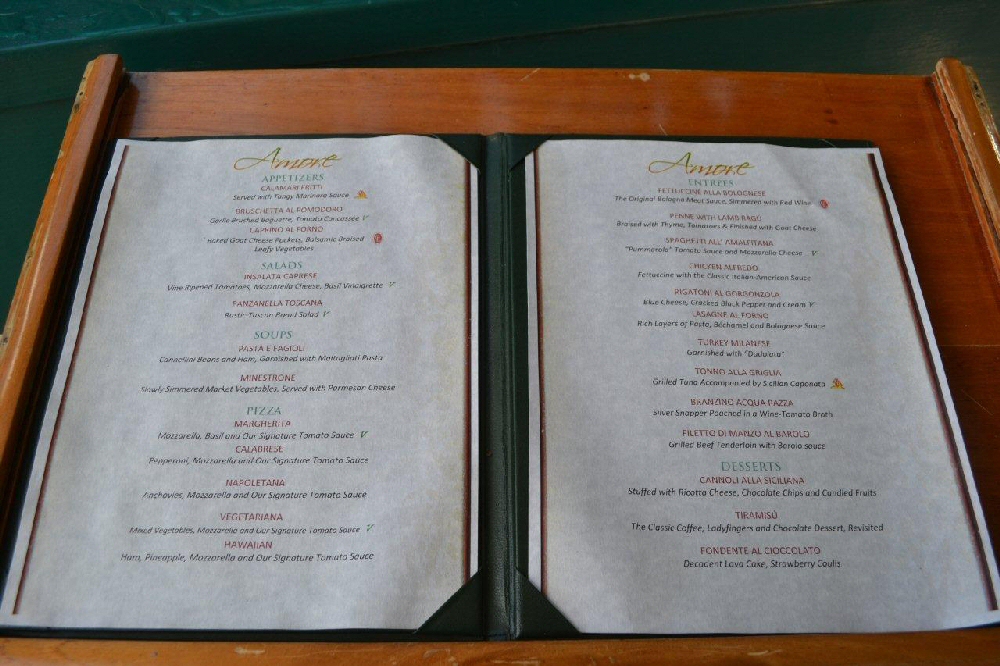 Amore
APPETIZERS
CALAMARI FRITTI
Served with Tangy Marinara Sauce
BRUSCHETTA AL POMODORO
Garlic Brushed Baguette, Tomato Concassee V
CAPRINO AL FORNO
Baked Goat Cheese Pockets, Balsamic Braised
Leafy Vegetables
SALADS
INSALATA CAPRESE
Vine Ripened Tomatoes, Mozzarella Cheese, Basil Vinaigrette V
PANZANELLA TOSCANA
Rustic Tuscan Bread Salad V
SOUPS
PASTA E FAGIOLI
Cannellini Beans and Ham, Garnished with Maltagliati Pasta
MINESTRONE
Slowly Simmered Market Vegetables, Served with Parmesan Cheese
PIZZA
MARGHERITA
Mozzarella, Basil and Our Signature Tomato Sauce V
CALABRESE
Pepperoni, Mozzarella and Our Signature Tomato Sauce
NAPOLETANA
Anchovies, Mozzarella and Our Signature Tomato Sauce
VEGETARIANA
Mixed Vegetables, Mozzarella and Our Signature Tomato Sauce V
HAWAIIAN
Ham, Pineapple, Mozzarella and Our Signature Tomato Sauce
Amore
ENTRÉES
FETTUCINE ALLA BOLOGNESE
The Original Bologna Meat Sauce, Simmered with Red Wine
PENNE WITH LAMB RAGÙ
Braised with Thyme, Tomatoes & Finished with Goat Cheese
SPAGHETTI ALL'
"Pommarola" Tomato Sauce and Mozzarella Cheese V
CHICKEN ALFREDO
Fettuccine with the Classic Italian-American Sauce
RIGATONI AL GORGONZOLA
Blue Cheese, Cracked Black Pepper and Cream V
LASAGNE AL FORNO
Rich Layers of Pasta, Béchamel and Bolognese Sauce
TURKEY MILANESE
Garnished with
TONNO ALLA GRIGLIA
Grilled Tuna Accompanied by Sicilian Caponata
BRANZINO ACQUA PAZZA
Silver Snapper Poached in a Wine-Tomato Broth
FILETTO DI MANZO AL BAROLO
Grilled Beef Tenderloin with Barolo sauce
DESSERTS
CANNOLI ALLA SICILIANA
Stuffed with Ricotta Cheese, Chocolate Chips and Candied Fruits
TIRAMISÙ
The Classic Coffee, Ladyfingers and Chocolate Dessert, Revisited
FONDENTE AL CIOCCOLATO
Decadent Lava Cake, Strawberry Coulis